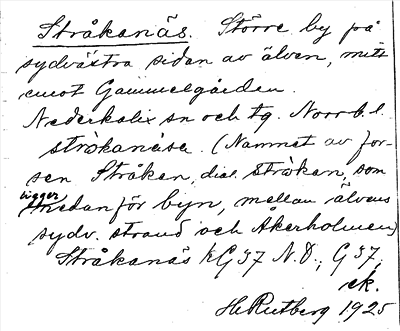 Stråkanäs. Större by på
sydvästra sidan av älven, mitt
emot Gammelgården.
Nederkalix sn och tg. Norrb. l.
stråkanäsa. (Namnet av for-
sen Stråken, dial. stråkan, som
ligger
nedanför byn, mellan älvens
sydv. strand och Åkerholmen)
Stråkanäs kG 37 N.O., G 37,
ek.
H Rutberg 1925